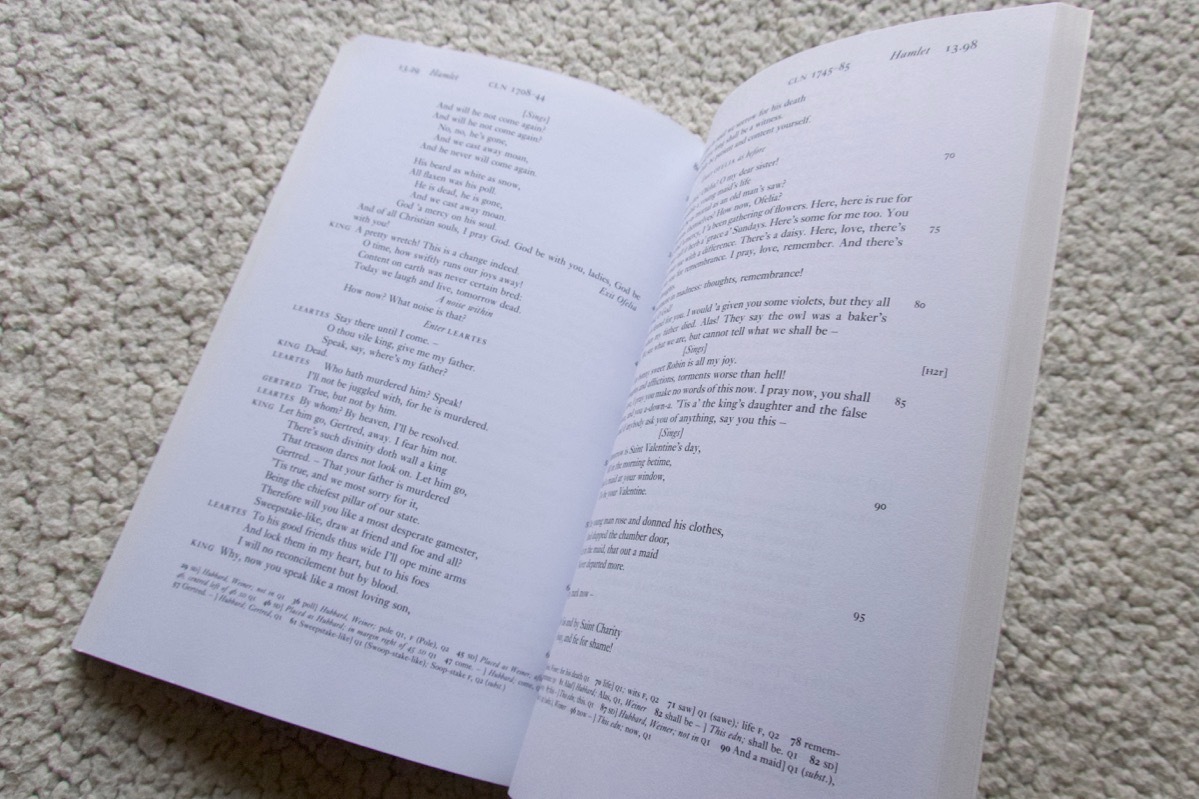 13.29 Hamlet
CLN 1708–44
[Sings]
And will he not come again?
And will he not come again?
No, no, he's gone,
And we cast away moan,
And he never will come again.
His beard as white as snow,
All flaxen was his poll.
He is dead, he is gone,
And we cast away moan.
God 'a mercy on his soul.
And of all Christian souls, I pray God. God be with you, ladies, God be
with you! Exit Ofelia
KING A pretty wretch! This is a change indeed.
O time, how swiftly runs our joys away!
Content on earth was never certain bred:
Today we laugh and live, tomorrow dead.
A noise within
How now? What noise is that?
Enter LEARTES
LEARTES Stay there until I come. –
O thou vile king, give me my father.
Speak, say, where's my father?
KING Dead.
LEARTES Who hath murdered him? Speak!
I'll not be juggled with, for he is murdered.
GERTRED True, but not by him.
LEARTES By whom? By heaven, I'll be resolved.
KING Let him go, Gertred, away. I fear him not.
There's such divinity doth wall a king
That treason dares not look on. Let him go,
Gertred. – That your father is murdered
'Tis true, and we most sorry for it,
Being the chiefest pillar of our state.
Therefore will you like a most desperate gamester,
Sweepstake-like, draw at friend and foe and all?
LEARTES To his good friends thus wide I'll ope mine arms
And lock them in my heart, but to his foes
I will no reconcilement but by blood.
KING Why, now you speak like a most loving son,
29 SD] Hubbard, Weiner; not in Q1 36 poll] Hubbard, Weiner; pole Q1, F (Pole), Q2 45 SD] Placed as Weiner;
46, centred left of 46 SD Q1 46 SD] Placed as Hubbard; in margin right of 45 SD Q1 47 come. – ] Hubbard; come,
57 Gertred. – ] Hubbard; Gertred, Q1 61 Sweepstake-like] Q1 (Swoop-stake-like); Soop-stake F, Q2 (subst.)
CLN 1745–85 Hamlet 13.98
sorrow for his death
shall be a witness.
patient and content yourself.
OFELIA as before
Ofelia! O my dear sister! 70
young maid's life
as an old man's saw?
How now, Ofelia?
'a been gathering of flowers. Here, here is rue for
herb a' grace a' Sundays. Here's some for me too. You 75
with a difference. There's a daisy. Here, love, there's
for remembrance. I pray, love, remember. And there's
in madness: thoughts, remembrance!
God!
for you. I would 'a given you some violets, but they all 80
my father died. Alas! They say the owl was a baker's
what we are, but cannot tell what we shall be –
[Sings]
sweet Robin is all my joy.
and afflictions, torments worse than hell! [H2r]
you make no words of this now. I pray now, you shall 85
and you a-down-a. 'Tis a' the king's daughter and the false
anybody ask you of anything, say you this –
[Sings]
is Saint Valentine's day,
in the morning betime,
maid at your window, 90
be your Valentine.
young man rose and donned his clothes,
dupped the chamber door,
the maid, that out a maid
departed more. 95
now –
and by Saint Charity
and fie for shame!
for his death Q1 70 life] Q1; wits F, Q2 71 saw] Q1 (sawe); life F, Q2 78 remem-
Hubbard; Alas, Q1, Weiner 82 shall be – ] This edn; shall be. Q1 82 SD]
This edn; this, Q1 87 SD] Hubbard, Weiner; not in Q1 90 And a maid] Q1 (subst.),
96 now – ] This edn; now, Q1